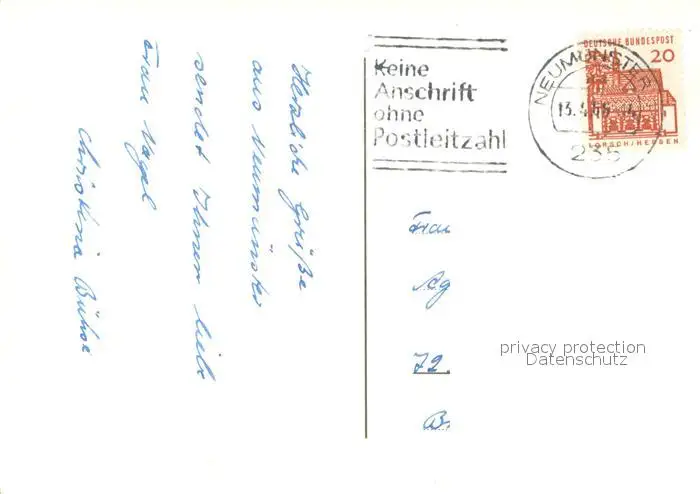 Herzliche Grüße
aus Neumünster
sendet Ihnen liebe
Frau Vogel
Christina
Keine
Anschrift
ohne
Postleitzahl
NEUMÜNSTER
235
DEUTSCHE BUNDESPOST
20
LORSCH/HESSEN
Frau
Ag
72.
B.
privacy protection
Datenschutz